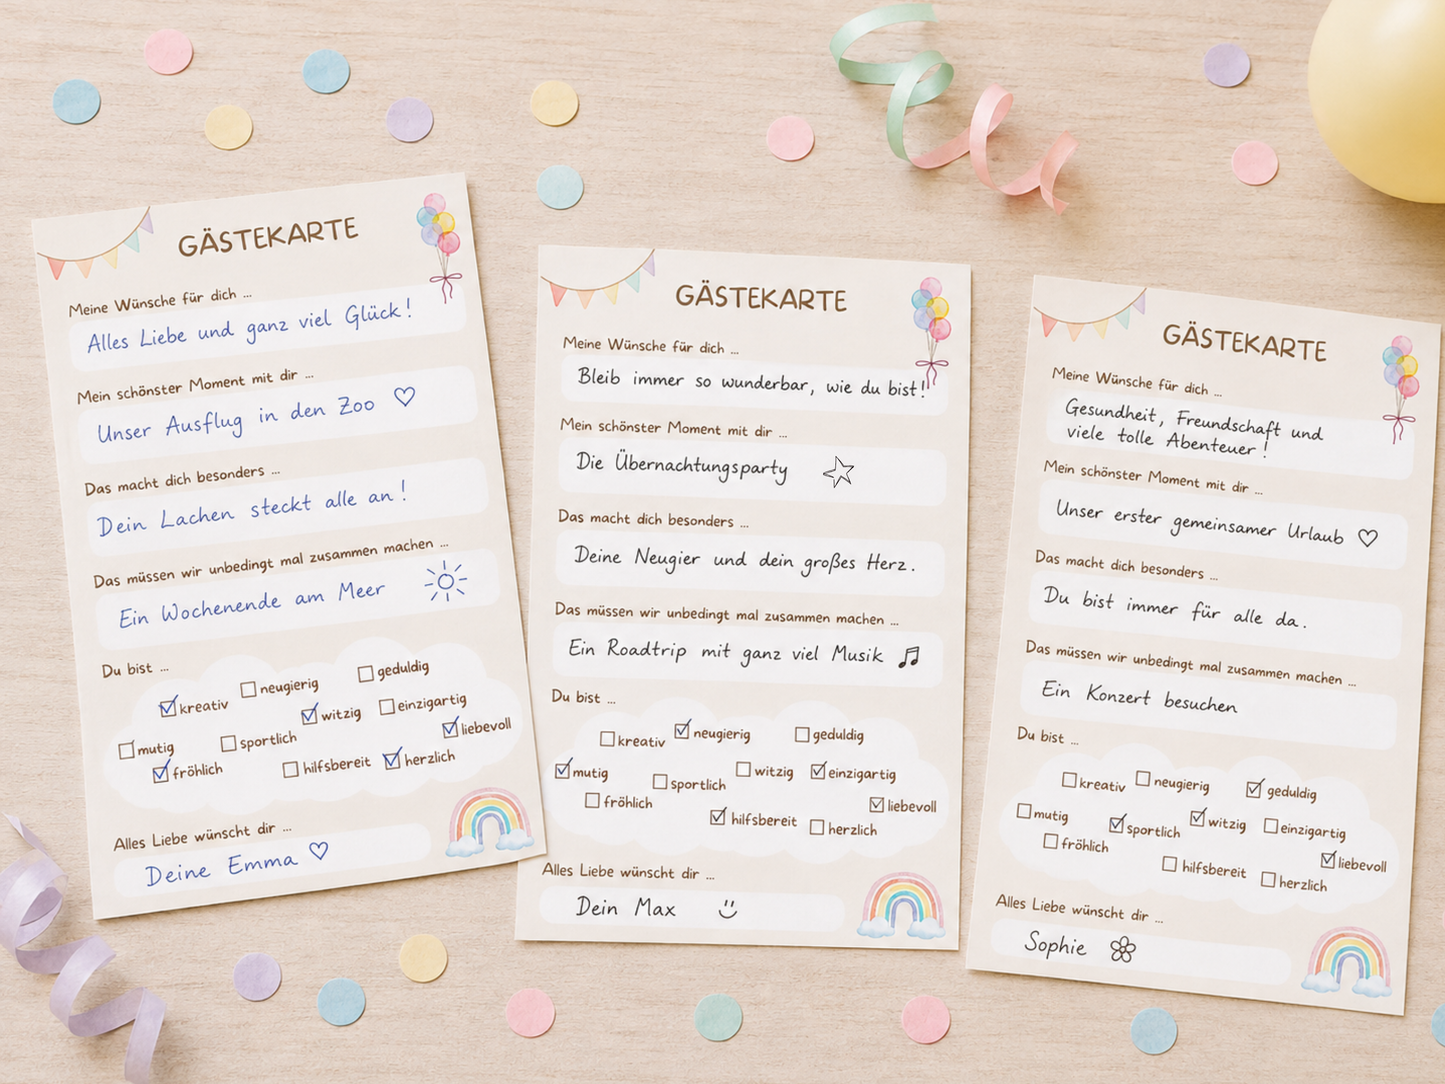 GÄSTEKARTE
Meine Wünsche für dich ...
Alles Liebe und ganz viel Glück!
Mein schönster Moment mit dir ...
Unser Ausflug in den Zoo ♡
Das macht dich besonders ...
Dein Lachen steckt alle an!
Das müssen wir unbedingt mal zusammen machen ...
Ein Wochenende am Meer
Du bist ...
☑ kreativ ☐ neugierig ☐ geduldig
☐ mutig ☐ sportlich ☑ witzig ☐ einzigartig
☑ fröhlich ☐ hilfsbereit ☑ herzlich ☑ liebevoll
Alles Liebe wünscht dir ...
Deine Emma ♡
GÄSTEKARTE
Meine Wünsche für dich ...
Bleib immer so wunderbar, wie du bist!
Mein schönster Moment mit dir ...
Die Übernachtungsparty ☆
Das macht dich besonders ...
Deine Neugier und dein großes Herz.
Das müssen wir unbedingt mal zusammen machen ...
Ein Roadtrip mit ganz viel Musik ♫
Du bist ...
☐ kreativ ☑ neugierig ☐ geduldig
☑ mutig ☐ sportlich ☐ witzig ☑ einzigartig
☐ fröhlich ☑ hilfsbereit ☐ herzlich ☑ liebevoll
Alles Liebe wünscht dir ...
Dein Max
GÄSTEKARTE
Meine Wünsche für dich ...
Gesundheit, Freundschaft und
viele tolle Abenteuer!
Mein schönster Moment mit dir ...
Unser erster gemeinsamer Urlaub ♡
Das macht dich besonders ...
Du bist immer für alle da.
Das müssen wir unbedingt mal zusammen machen ...
Ein Konzert besuchen
Du bist ...
☐ kreativ ☐ neugierig ☑ geduldig
☐ mutig ☑ sportlich ☑ witzig ☐ einzigartig
☐ fröhlich ☐ hilfsbereit ☐ herzlich ☑ liebevoll
Alles Liebe wünscht dir ...
Sophie